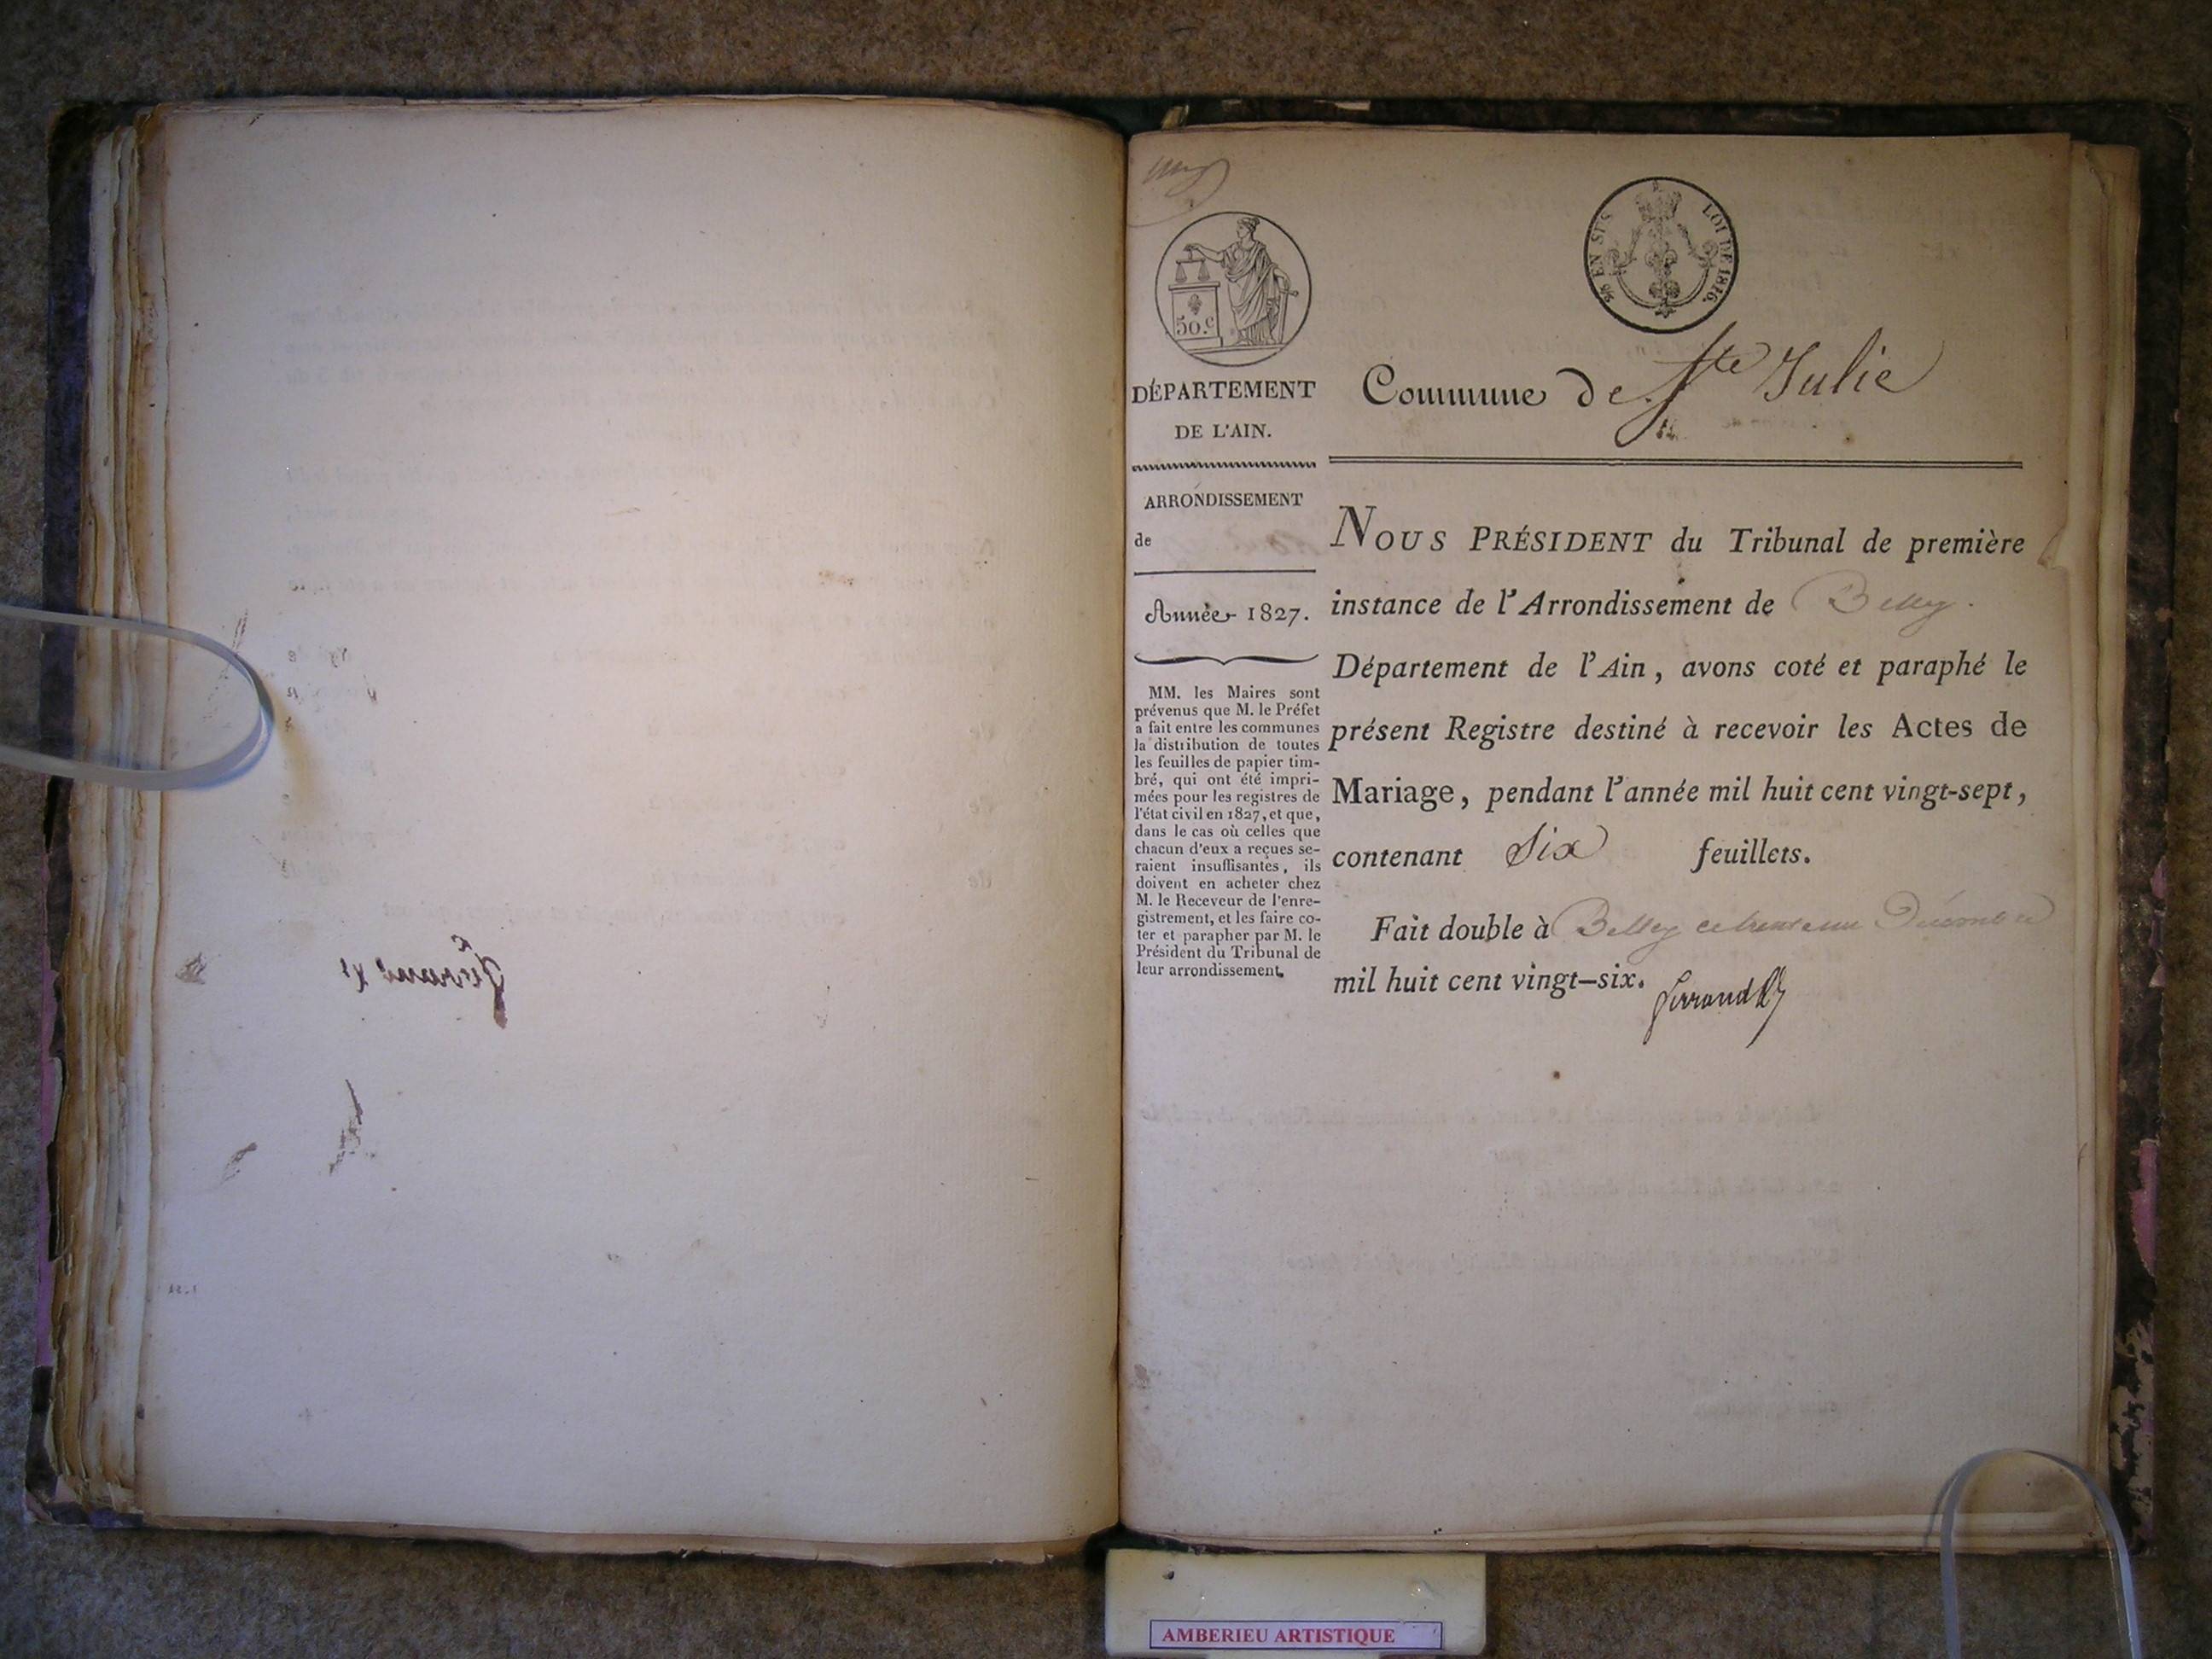 50.c
EN SUS
LOI DE 1816.
DÉPARTEMENT
DE L'AIN.
ARRONDISSEMENT
de
Année 1827.
MM. les Maires sont
prévenus que M. le Préfet
a fait entre les communes
la distribution de toutes
les feuilles de papier tim-
bré, qui ont été impri-
mées pour les registres de
l'état civil en 1827, et que,
dans le cas où celles que
chacun d'eux a reçues se-
raient insuffisantes, ils
doivent en acheter chez
M. le Receveur de l'enre-
gistrement, et les faire co-
ter et parapher par M. le
Président du Tribunal de
leur arrondissement.
Commune de Ste Julie
NOUS PRÉSIDENT du Tribunal de première
instance de l'Arrondissement de Belley
Département de l'Ain, avons coté et paraphé le
présent Registre destiné à recevoir les Actes de
Mariage, pendant l'année mil huit cent vingt-sept,
contenant Six feuillets.
Fait double à Belley ce trente un Décembre
mil huit cent vingt-six.
AMBERIEU ARTISTIQUE